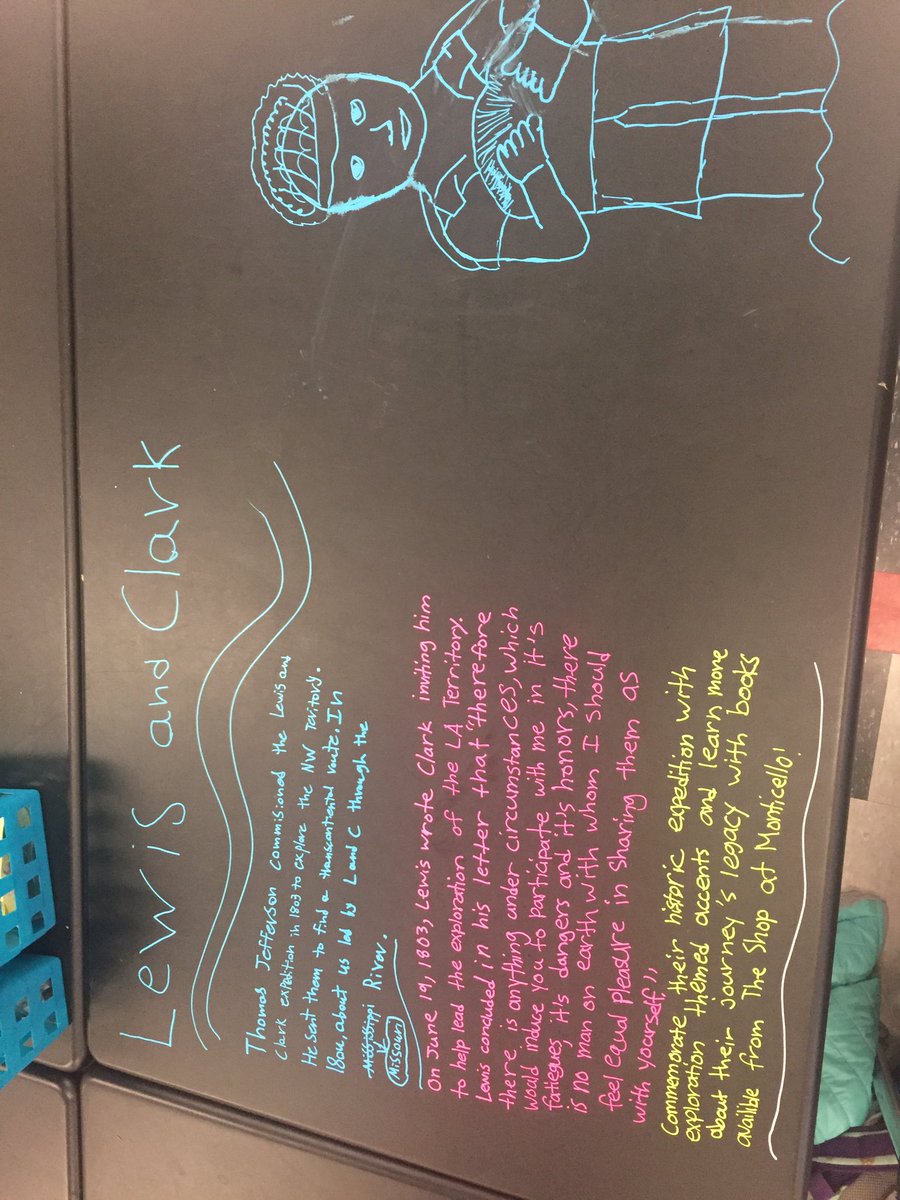 Lewis and Clark
Thomas Jefferson commisioned the Lewis and
Clark expedition in 1803 to explore the NW territory.
He sent them to find a transcontental route. In
1800, about us led by L and C through the
Mississippi River.
Missouri
On June 19, 1803, Lewis wrote Clark inviting him
to help lead the exploration of the LA Territory.
Lewis concluded, in his letter that "therefore
there is anything under circumstances, which
would induce you to participate with me in it's
fatiegues, it's dangers and it's honors, there
is no man on earth with whom I should
feel equal pleasure in sharing them as
with yourself,,
Commemorate their historic expedition with
exploration themed accents and learn more
about their journey's legacy with books
availible from The Shop at Monticello!